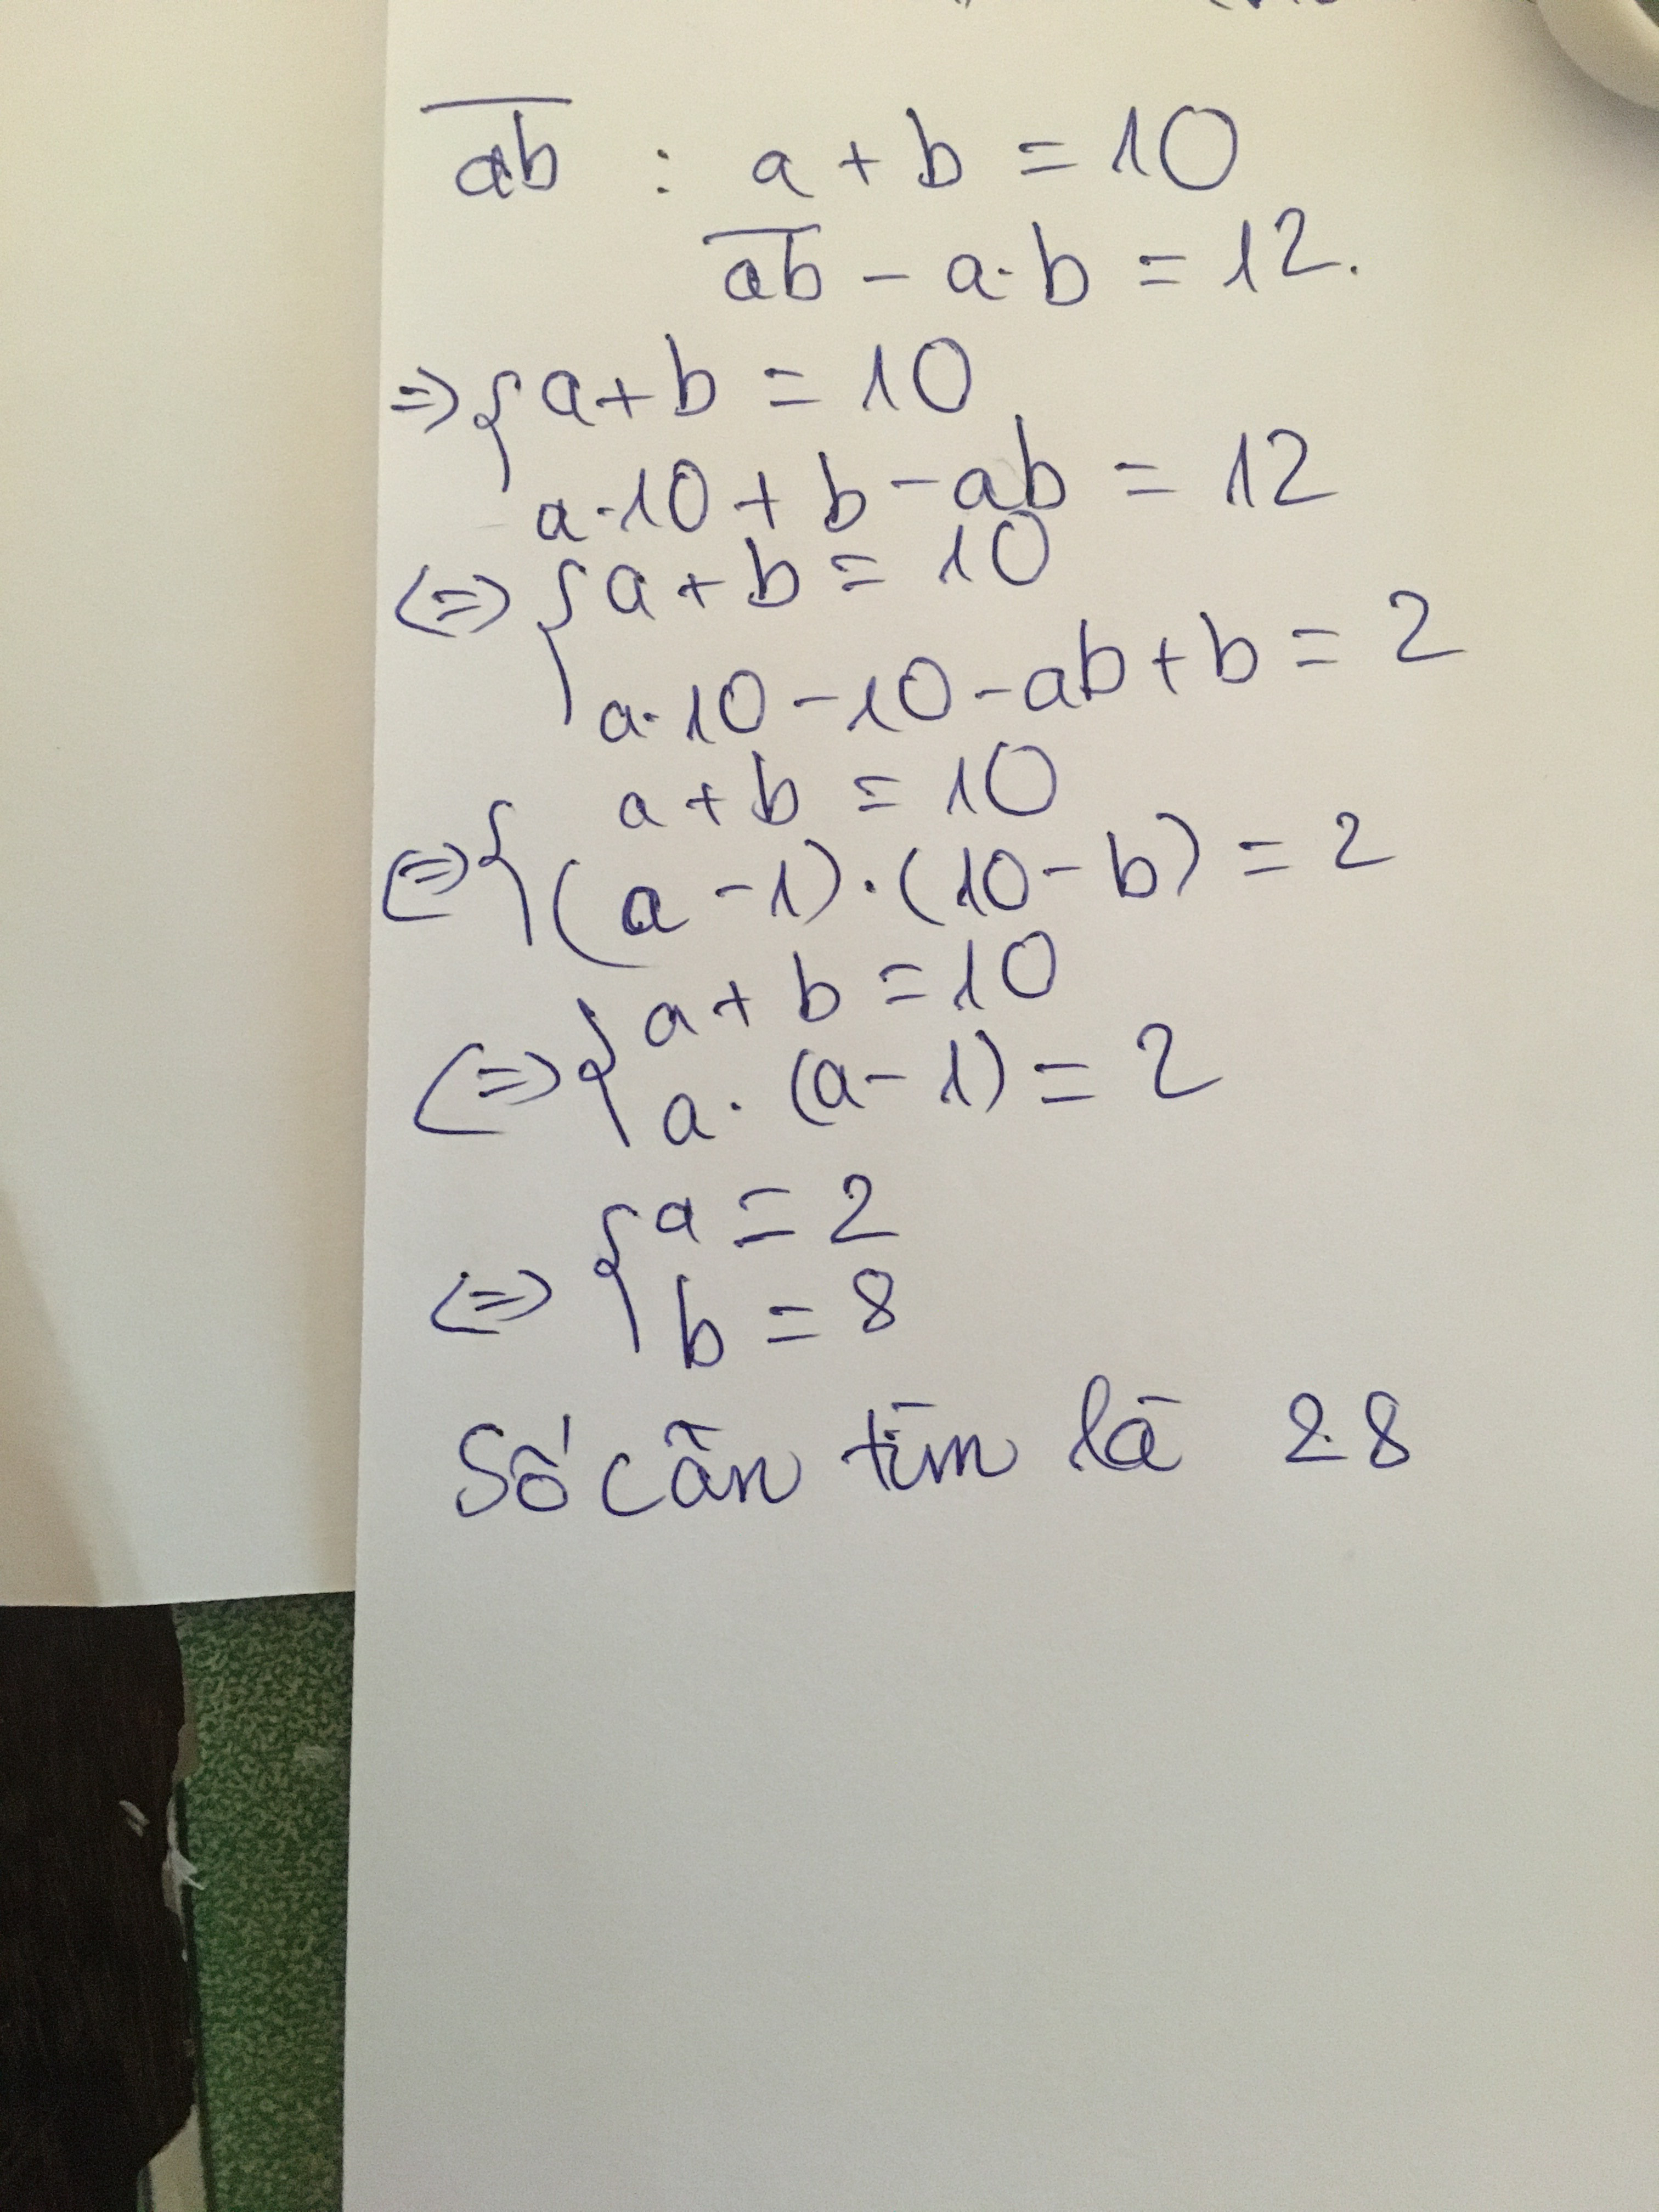 ab : a + b = 10
ab - a.b = 12.
=> { a + b = 10
a.10 + b - ab = 12
<=> { a + b = 10
a.10 - 10 - ab + b = 2
a + b = 10
<=> { (a - 1).(10 - b) = 2
a + b = 10
<=> { a.(a - 1) = 2
<=> { a = 2
b = 8
Số cần tìm là 28